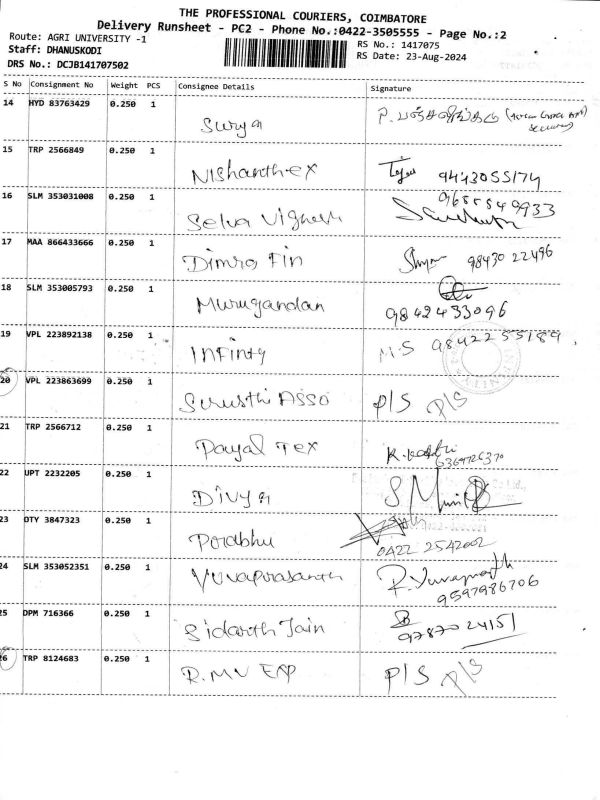 THE PROFESSIONAL COURIERS, COIMBATORE
Delivery Runsheet - PC2 - Phone No.:0422-3505555 - Page No.:2
Route: AGRI UNIVERSITY -1
RS No.: 1417075
Staff: DHANUSKODI
RS Date: 23-Aug-2024
DRS No.: DCJB141707502
S No Consignment No Weight PCS Consignee Details Signature
14 HYD 83763429 0.250 1 Surya
15 TRP 2566849 0.250 1 Nishanth ex 9443055174
16 SLM 353031008 0.250 1 Selva Vignesh 9685549933
17 MAA 866433666 0.250 1 Dimro Fin 98430 22496
18 SLM 353005793 0.250 1 Murugandan 9842433096
19 VPL 223892138 0.250 1 Infinty M.S 9842255189
20 VPL 223863699 0.250 1 Sourthi Asso P/S P/S
21 TRP 2566712 0.250 1 Payal Tex 6369726370
22 UPT 2232205 0.250 1 Divya
23 OTY 3847323 0.250 1 Porabhu 0422 2542002
24 SLM 353052351 0.250 1 Yuvaprasanth 9597986706
25 DPM 716366 0.250 1 Sidarth Jain 9787024151
26 TRP 8124683 0.250 1 R.MV EXP P/S P/S